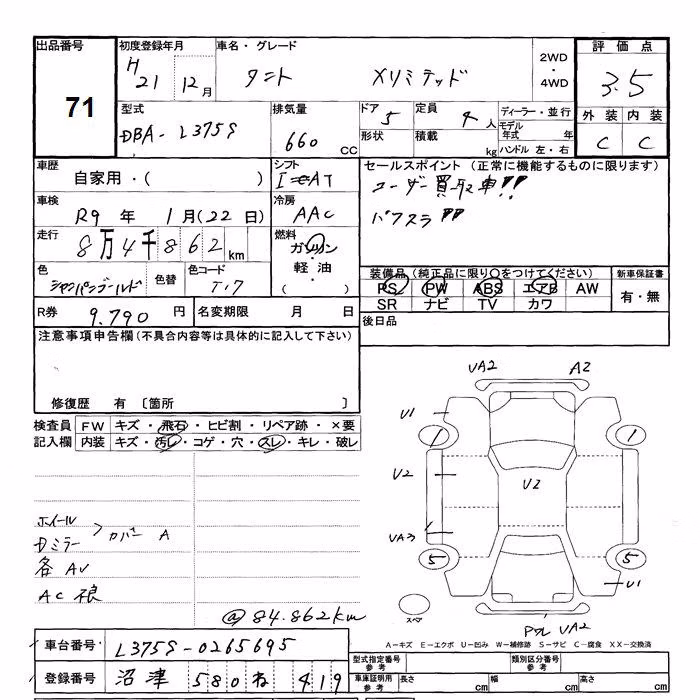 出品番号
71
初度登録年月
H 21 12月
車名・グレード
タント Xリミテッド
2WD
・
4WD
評価点
3.5
外装 内装
C C
型式
DBA-L375S
排気量
660 CC
ドア 5
形状
定員 4人
積載 kg
ディーラー・並行
モデル年式 年
ハンドル 左・右
車歴
自家用・( )
シフト
車検
R9年 1月(22日)
冷房
AAC
走行
8万4千862km
燃料
ガソリン
・
軽油
色
シャンパンゴールド
色替
色コード
T.7
セールスポイント(正常に機能するものに限ります)
ユーザー買取車!!
バアスラ
装備品(純正品に限り○をつけてください)
PS PW ABS エアB AW
SR ナビ TV カワ
新車保証書
有・無
後日品
R券 9.790円
名変期限 月 日
注意事項申告欄(不具合内容等は具体的に記入して下さい)
修復歴 有 〔箇所 〕
検査員記入欄
FW キズ・飛石・ヒビ割・リペア跡・×要
内装 キズ・汚レ・コゲ・穴・スレ・キレ・破レ
ホイール
Dミラー > カバー A
各AU
AC 損
@84.862km
UA2 A2
U1
1 1
U2
U2
UA3
5 5
U1
スペア
UA2
A-キズ E-エクボ U-凹み W-補修跡 S-サビ C-腐食 XX-交換済
車台番号 L375S-0265695
登録番号 沼津 580 ね 419
型式指定番号 参考
類別区分番号 参考
車庫証明用 参考
長さ cm
幅 cm
高さ cm